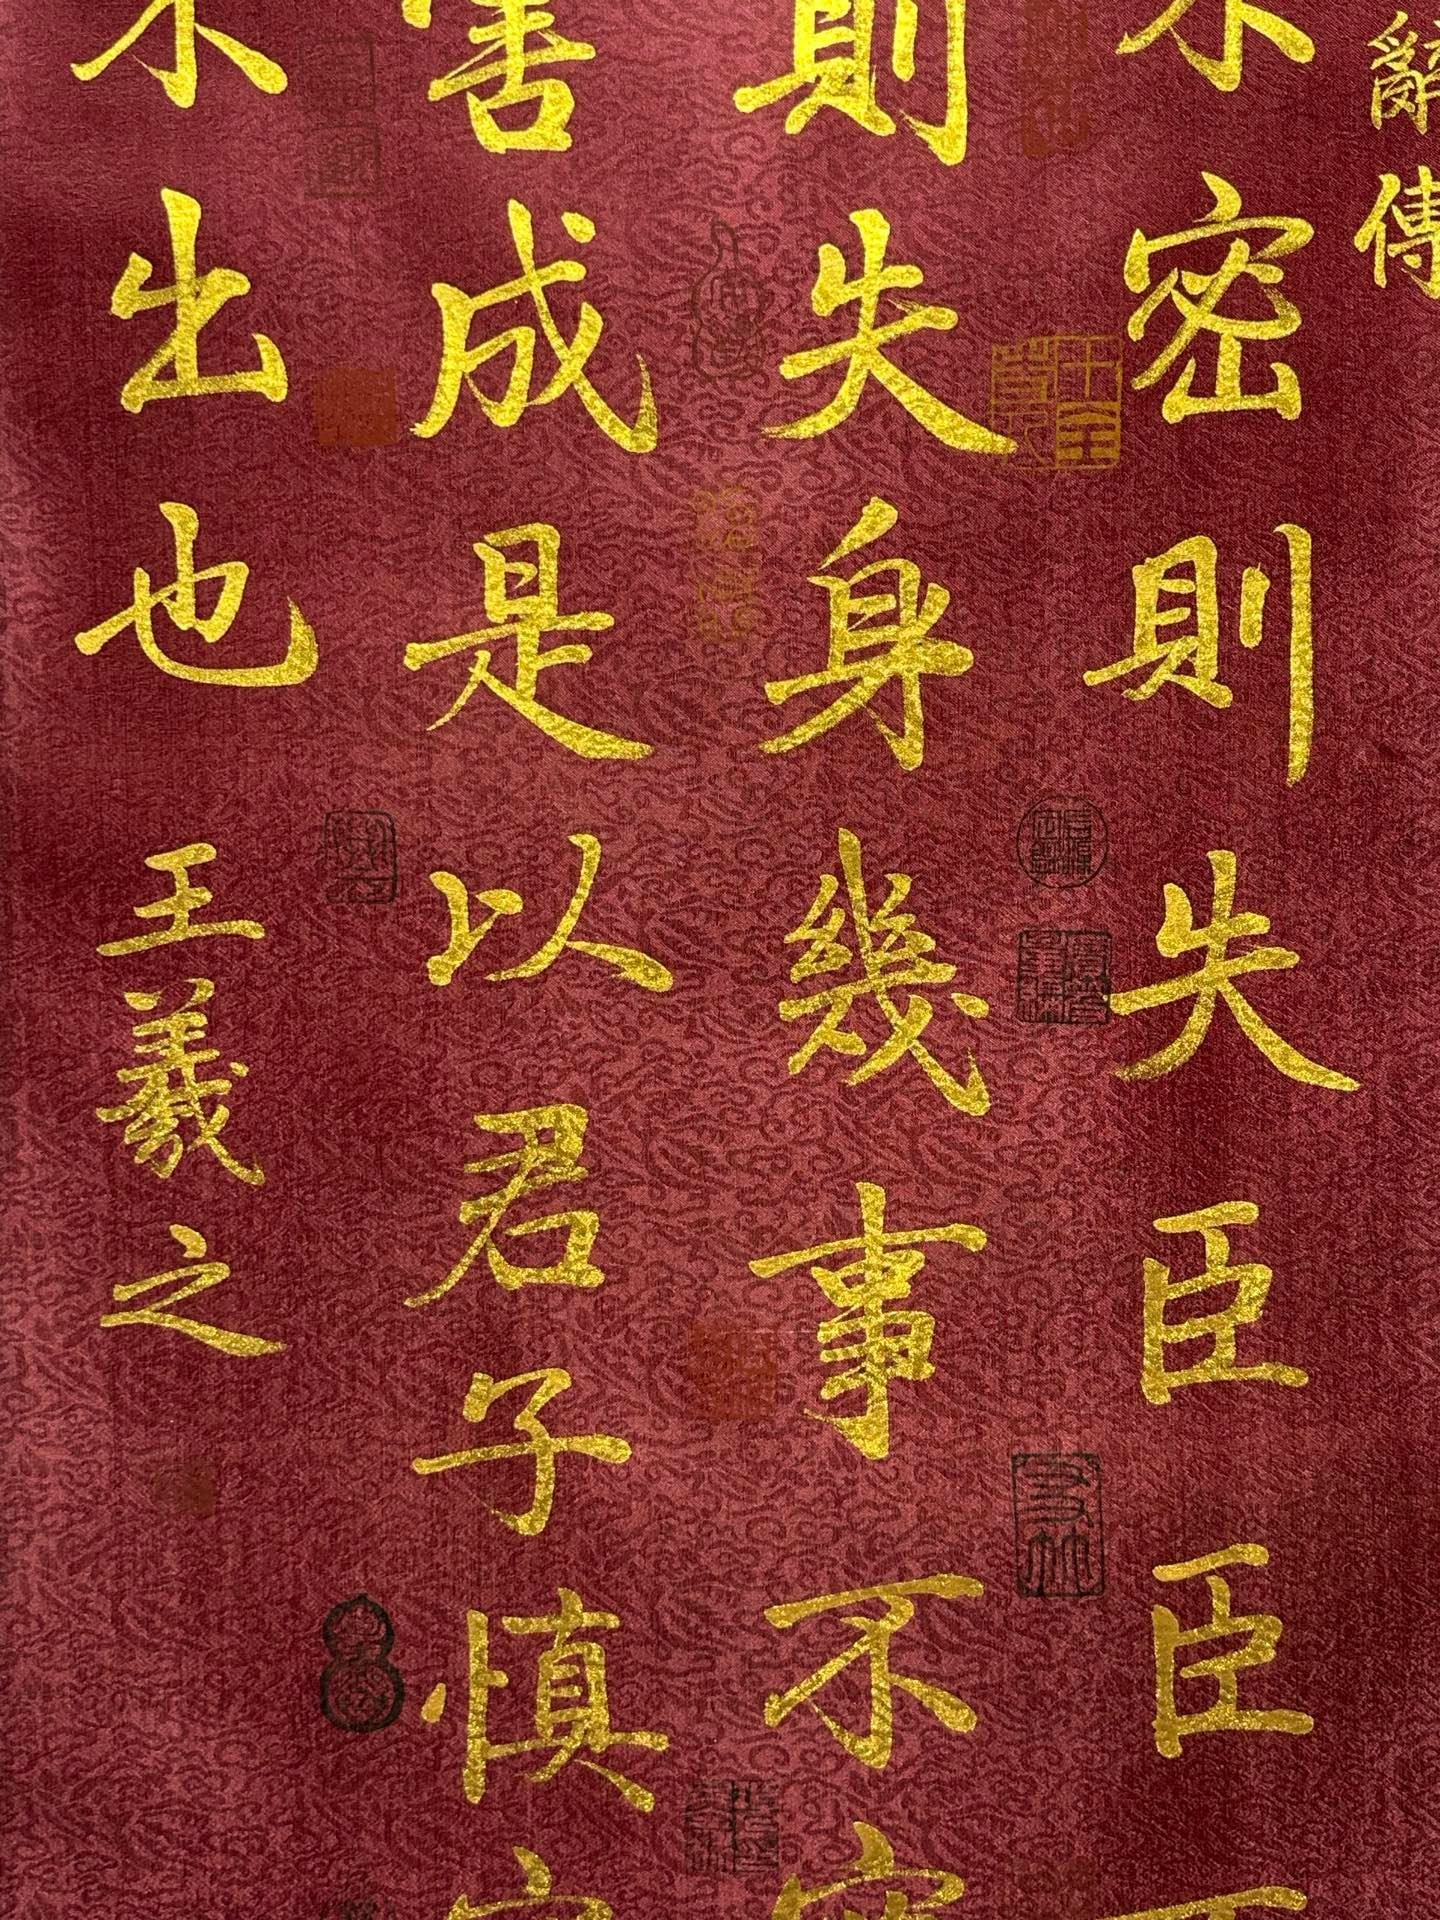 辭傳
不密則失臣臣不
則失身幾事不密
害成是以君子慎密
不出也 王羲之